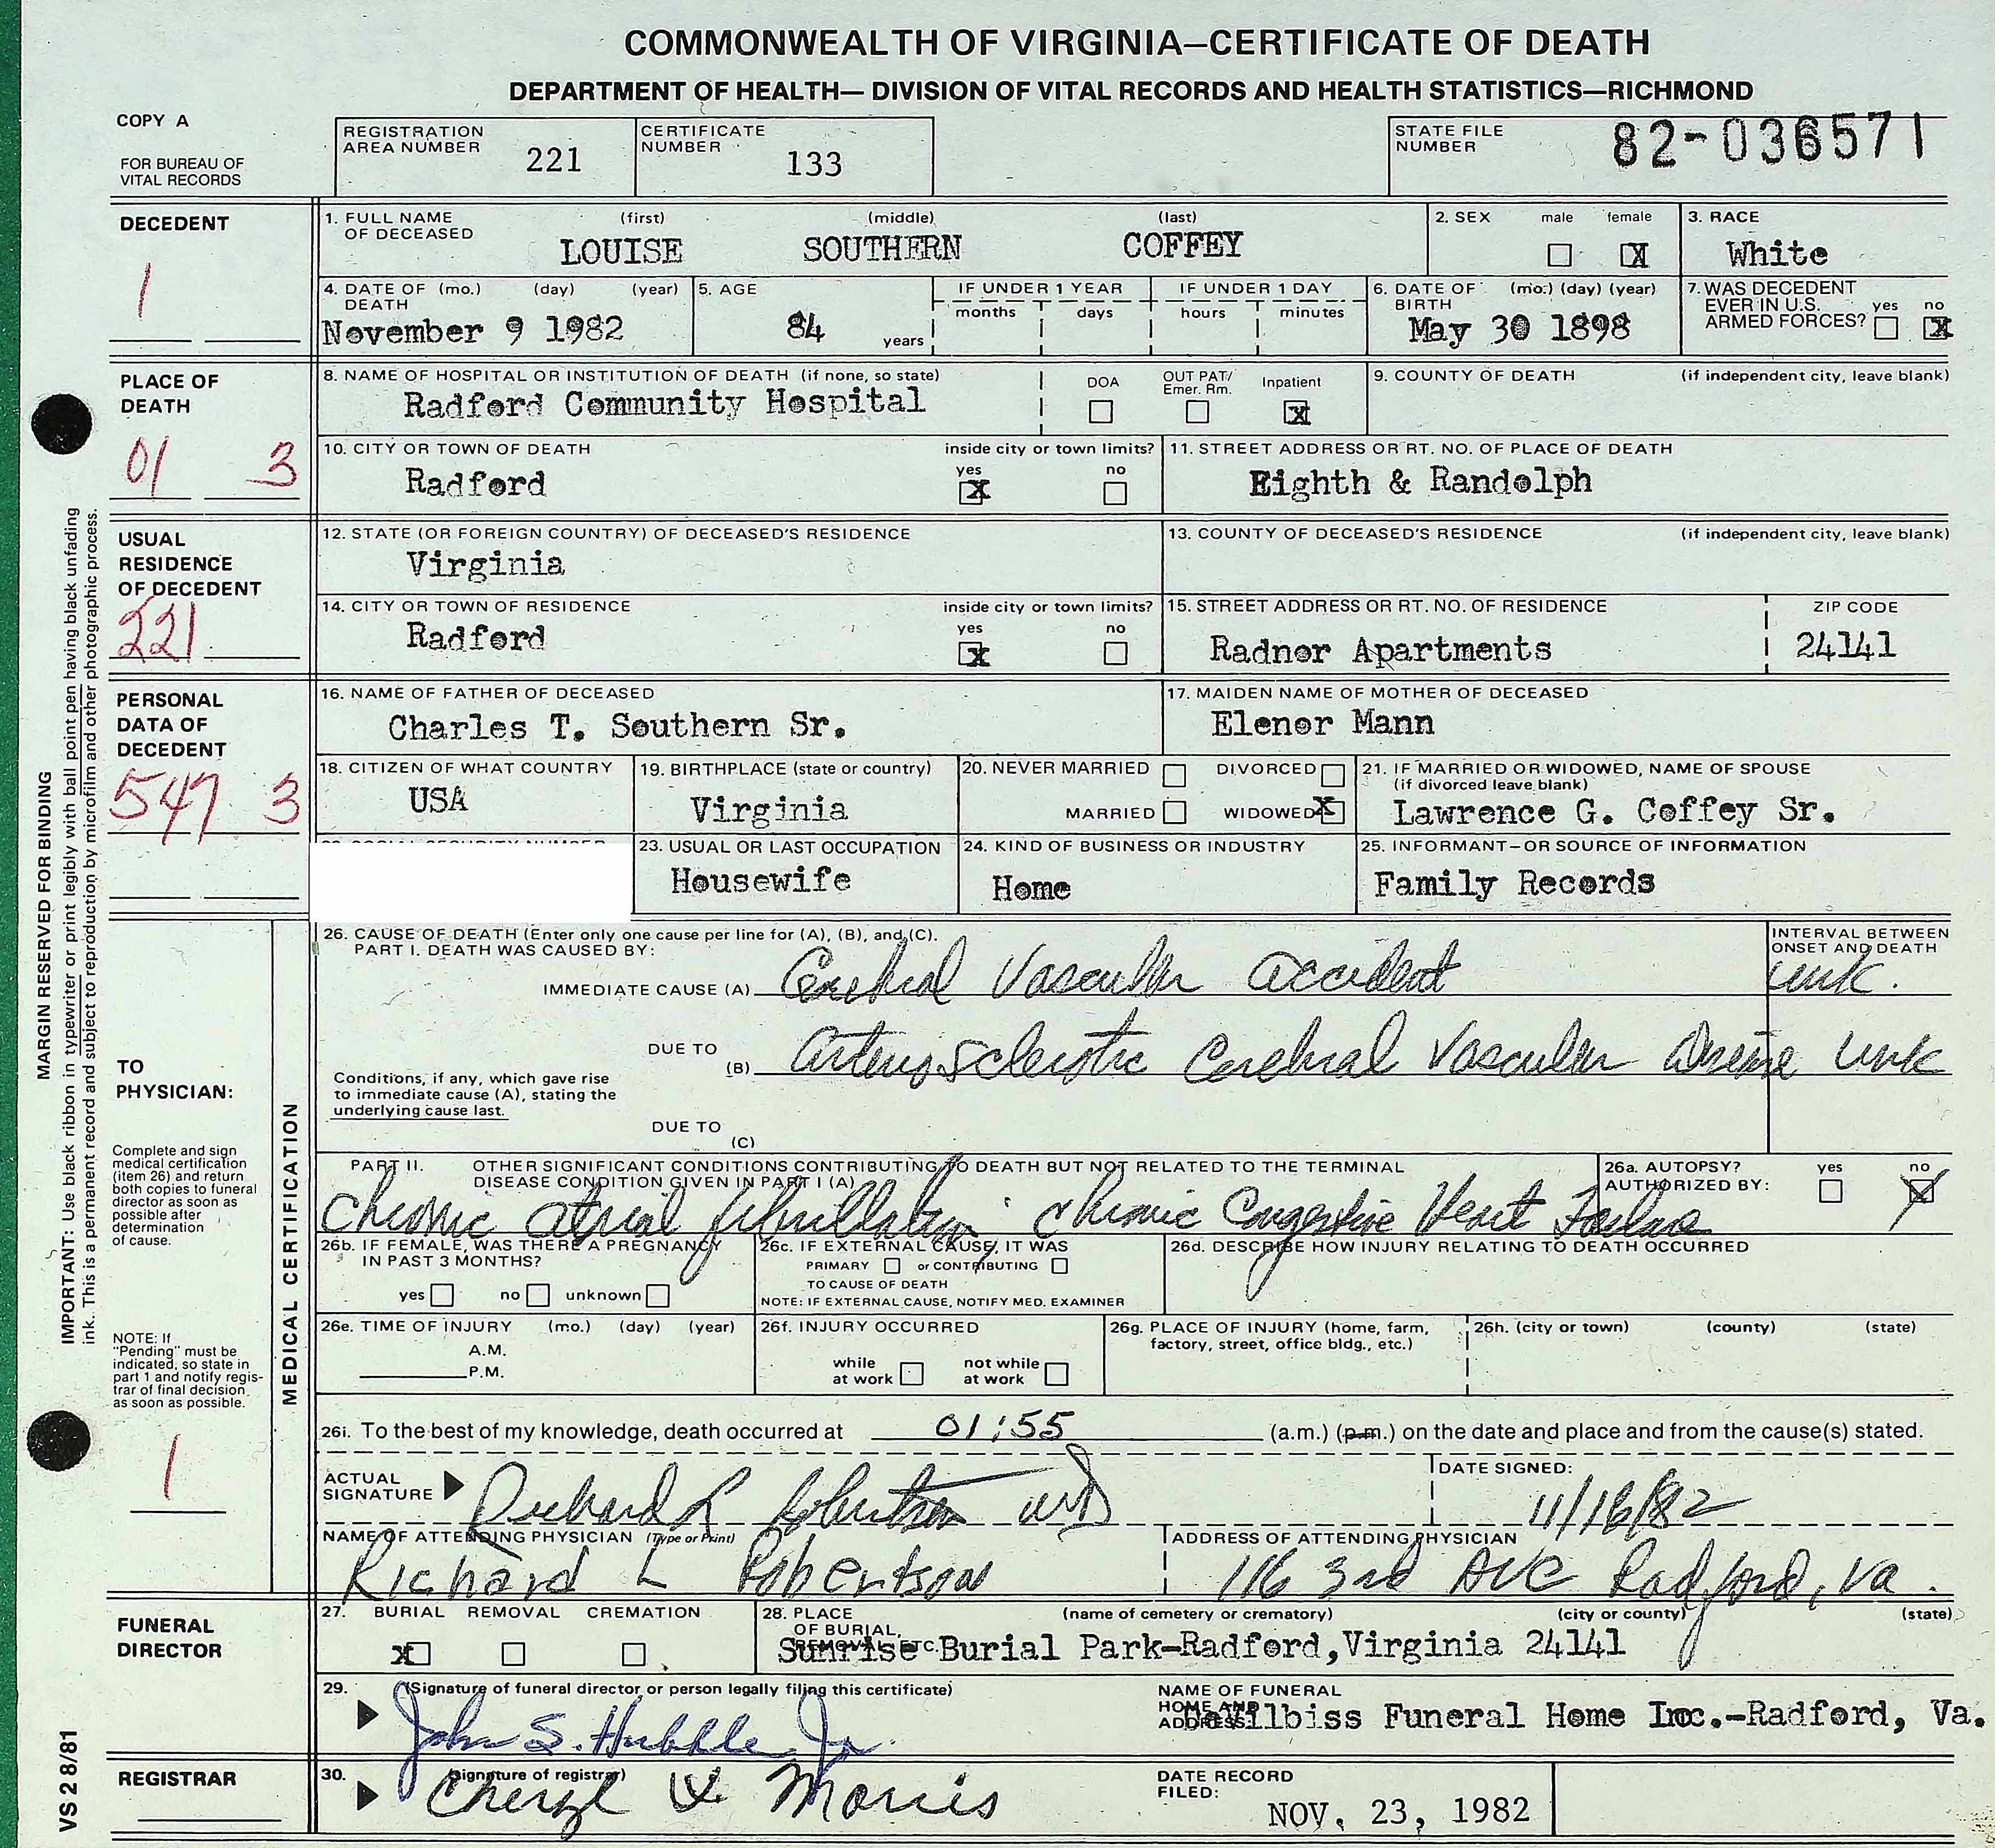 COMMONWEALTH OF VIRGINIA—CERTIFICATE OF DEATH
DEPARTMENT OF HEALTH— DIVISION OF VITAL RECORDS AND HEALTH STATISTICS—RICHMOND
COPY A
FOR BUREAU OF
VITAL RECORDS
REGISTRATION
AREA NUMBER 221
CERTIFICATE
NUMBER 133
STATE FILE
NUMBER 82-036571
DECEDENT
1
1. FULL NAME (first) (middle) (last)
OF DECEASED LOUISE SOUTHERN COFFEY
2. SEX male female X
3. RACE
White
4. DATE OF (mo.) (day) (year)
DEATH
November 9 1982
5. AGE
84 years
IF UNDER 1 YEAR
months days
IF UNDER 1 DAY
hours minutes
6. DATE OF (mo.) (day) (year)
BIRTH
May 30 1898
7. WAS DECEDENT
EVER IN U.S. yes no
ARMED FORCES? X
PLACE OF
DEATH
01 3
8. NAME OF HOSPITAL OR INSTITUTION OF DEATH (if none, so state)
Radford Community Hospital
DOA OUT PAT/ Emer. Rm. Inpatient X
9. COUNTY OF DEATH (if independent city, leave blank)
10. CITY OR TOWN OF DEATH inside city or town limits?
Radford yes X no
11. STREET ADDRESS OR RT. NO. OF PLACE OF DEATH
Eighth & Randolph
USUAL
RESIDENCE
OF DECEDENT
221
12. STATE (OR FOREIGN COUNTRY) OF DECEASED'S RESIDENCE
Virginia
13. COUNTY OF DECEASED'S RESIDENCE (if independent city, leave blank)
14. CITY OR TOWN OF RESIDENCE inside city or town limits?
Radford yes X no
15. STREET ADDRESS OR RT. NO. OF RESIDENCE ZIP CODE
Radnor Apartments 24141
PERSONAL
DATA OF
DECEDENT
547 3
16. NAME OF FATHER OF DECEASED
Charles T. Southern Sr.
17. MAIDEN NAME OF MOTHER OF DECEASED
Elenor Mann
18. CITIZEN OF WHAT COUNTRY
USA
19. BIRTHPLACE (state or country)
Virginia
20. NEVER MARRIED DIVORCED
MARRIED WIDOWED X
21. IF MARRIED OR WIDOWED, NAME OF SPOUSE
(if divorced leave blank)
Lawrence G. Coffey Sr.
23. USUAL OR LAST OCCUPATION
Housewife
24. KIND OF BUSINESS OR INDUSTRY
Home
25. INFORMANT—OR SOURCE OF INFORMATION
Family Records
MARGIN RESERVED FOR BINDING
IMPORTANT: Use black ribbon in typewriter or print legibly with ball point pen having black unfading
ink. This is a permanent record and subject to reproduction by microfilm and other photographic process.
VS 2 8/81
TO
PHYSICIAN:
Complete and sign
medical certification
(item 26) and return
both copies to funeral
director as soon as
possible after
determination
of cause.
NOTE: If
"Pending" must be
indicated, so state in
part 1 and notify regis-
trar of final decision
as soon as possible.
1
MEDICAL CERTIFICATION
26. CAUSE OF DEATH (Enter only one cause per line for (A), (B), and (C).
PART I. DEATH WAS CAUSED BY:
INTERVAL BETWEEN
ONSET AND DEATH
IMMEDIATE CAUSE (A) Cerebral Vascular accident unk.
DUE TO
(B) Arteriosclerotic Cerebral Vascular Disease unk
Conditions, if any, which gave rise
to immediate cause (A), stating the
underlying cause last.
DUE TO
(C)
PART II. OTHER SIGNIFICANT CONDITIONS CONTRIBUTING TO DEATH BUT NOT RELATED TO THE TERMINAL
DISEASE CONDITION GIVEN IN PART I (A)
Chronic atrial fibrillation; Chronic Congestive Heart Failure
26a. AUTOPSY? yes no
AUTHORIZED BY: X
26b. IF FEMALE, WAS THERE A PREGNANCY
IN PAST 3 MONTHS?
yes no unknown
26c. IF EXTERNAL CAUSE, IT WAS
PRIMARY or CONTRIBUTING
TO CAUSE OF DEATH
NOTE: IF EXTERNAL CAUSE, NOTIFY MED. EXAMINER
26d. DESCRIBE HOW INJURY RELATING TO DEATH OCCURRED
26e. TIME OF INJURY (mo.) (day) (year)
A.M.
P.M.
26f. INJURY OCCURRED
while at work not while at work
26g. PLACE OF INJURY (home, farm,
factory, street, office bldg., etc.)
26h. (city or town) (county) (state)
26i. To the best of my knowledge, death occurred at 01:55 (a.m.) (p.m.) on the date and place and from the cause(s) stated.
ACTUAL
SIGNATURE Richard L Robertson MD
DATE SIGNED:
11/16/82
NAME OF ATTENDING PHYSICIAN (Type or Print)
Richard L Robertson
ADDRESS OF ATTENDING PHYSICIAN
116 3rd Ave Radford, Va.
FUNERAL
DIRECTOR
27. BURIAL REMOVAL CREMATION
X
28. PLACE (name of cemetery or crematory) (city or county) (state)
OF BURIAL,
REMOVAL, ETC.
Sunrise Burial Park-Radford,Virginia 24141
29. (Signature of funeral director or person legally filing this certificate)
John S. Hubble Jr.
NAME OF FUNERAL
HOME AND
ADDRESS:
DeVilbiss Funeral Home Inc.-Radford, Va.
REGISTRAR
30. (Signature of registrar)
Cheryl Morris
DATE RECORD
FILED:
NOV. 23, 1982